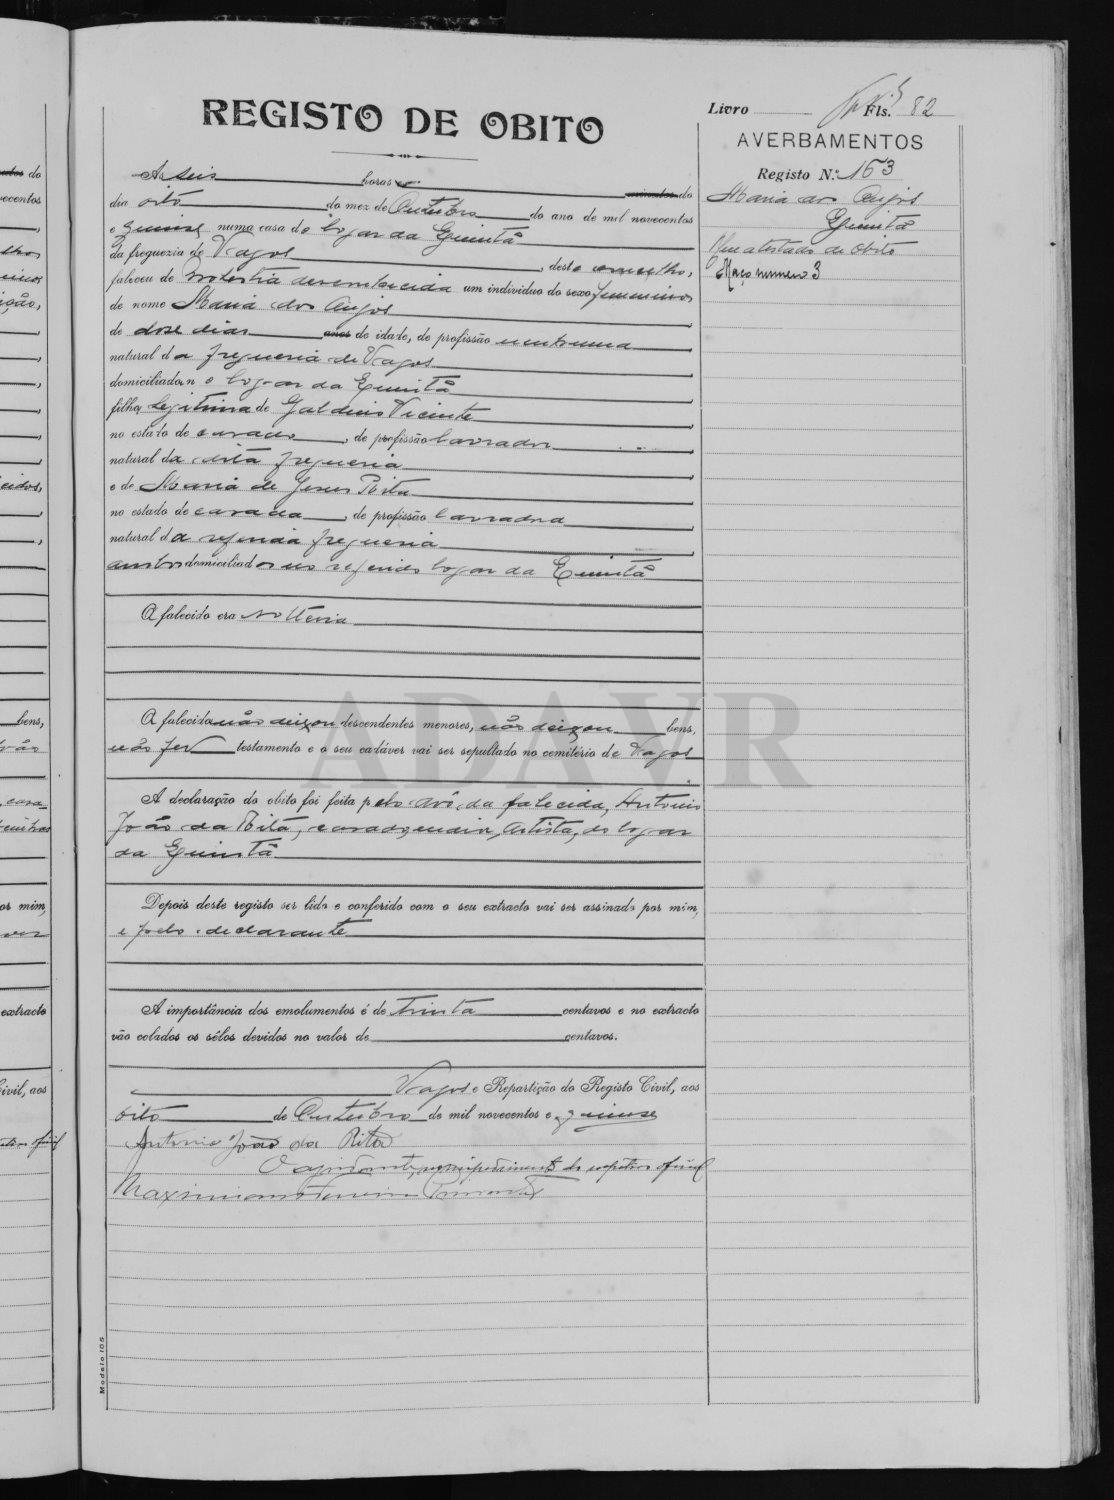 Livro Fls. 82
REGISTO DE OBITO
AVERBAMENTOS
Registo N.º 163
Maria dos Anjos
Quintã
Um atestado de obito
Maço numero 3
As seis horas minutos do
dia oito do mez de Outubro do ano de mil novecentos
e quinse numa casa do logar da Quintã
da freguezia de Vagos, deste concelho,
faleceu de molestia desconhecida um individuo do sexo femenino
de nome Maria dos Anjos,
de dose dias anos de idade, de profissão nenhuma,
natural da freguesia de Vagos,
domiciliada no logar da Quintã,
filha legitima de Galdino Vicente,
no estado de casado, de profissão lavrador,
natural da dita freguesia,
e de Maria de Jesus Rita,
no estado de casada, de profissão lavradora,
natural da referida freguesia,
ambos domiciliados no referido logar da Quintã
A falecida era solteira
A falecida não deixou descendentes menores, não deixou bens,
não fez testamento e o seu cadáver vai ser sepultado no cemitério de Vagos
A declaração do obito foi feita pelo avô da falecida, Antonio
João da Rita, casado, artista, do logar
da Quintã
Depois deste registo ser lido e conferido com o seu extracto vai ser assinado por mim,
e pelo declarante
A importância dos emolumentos é de trinta centavos e no extracto
vão colados os sêlos devidos no valor de centavos.
Vagos e Repartição do Registo Civil, aos
oito de Outubro de mil novecentos e quinse
Antonio João da Rita
O ajudante, no impedimento do respetivo oficial
Maximiano
Modelo 105
ADAVR